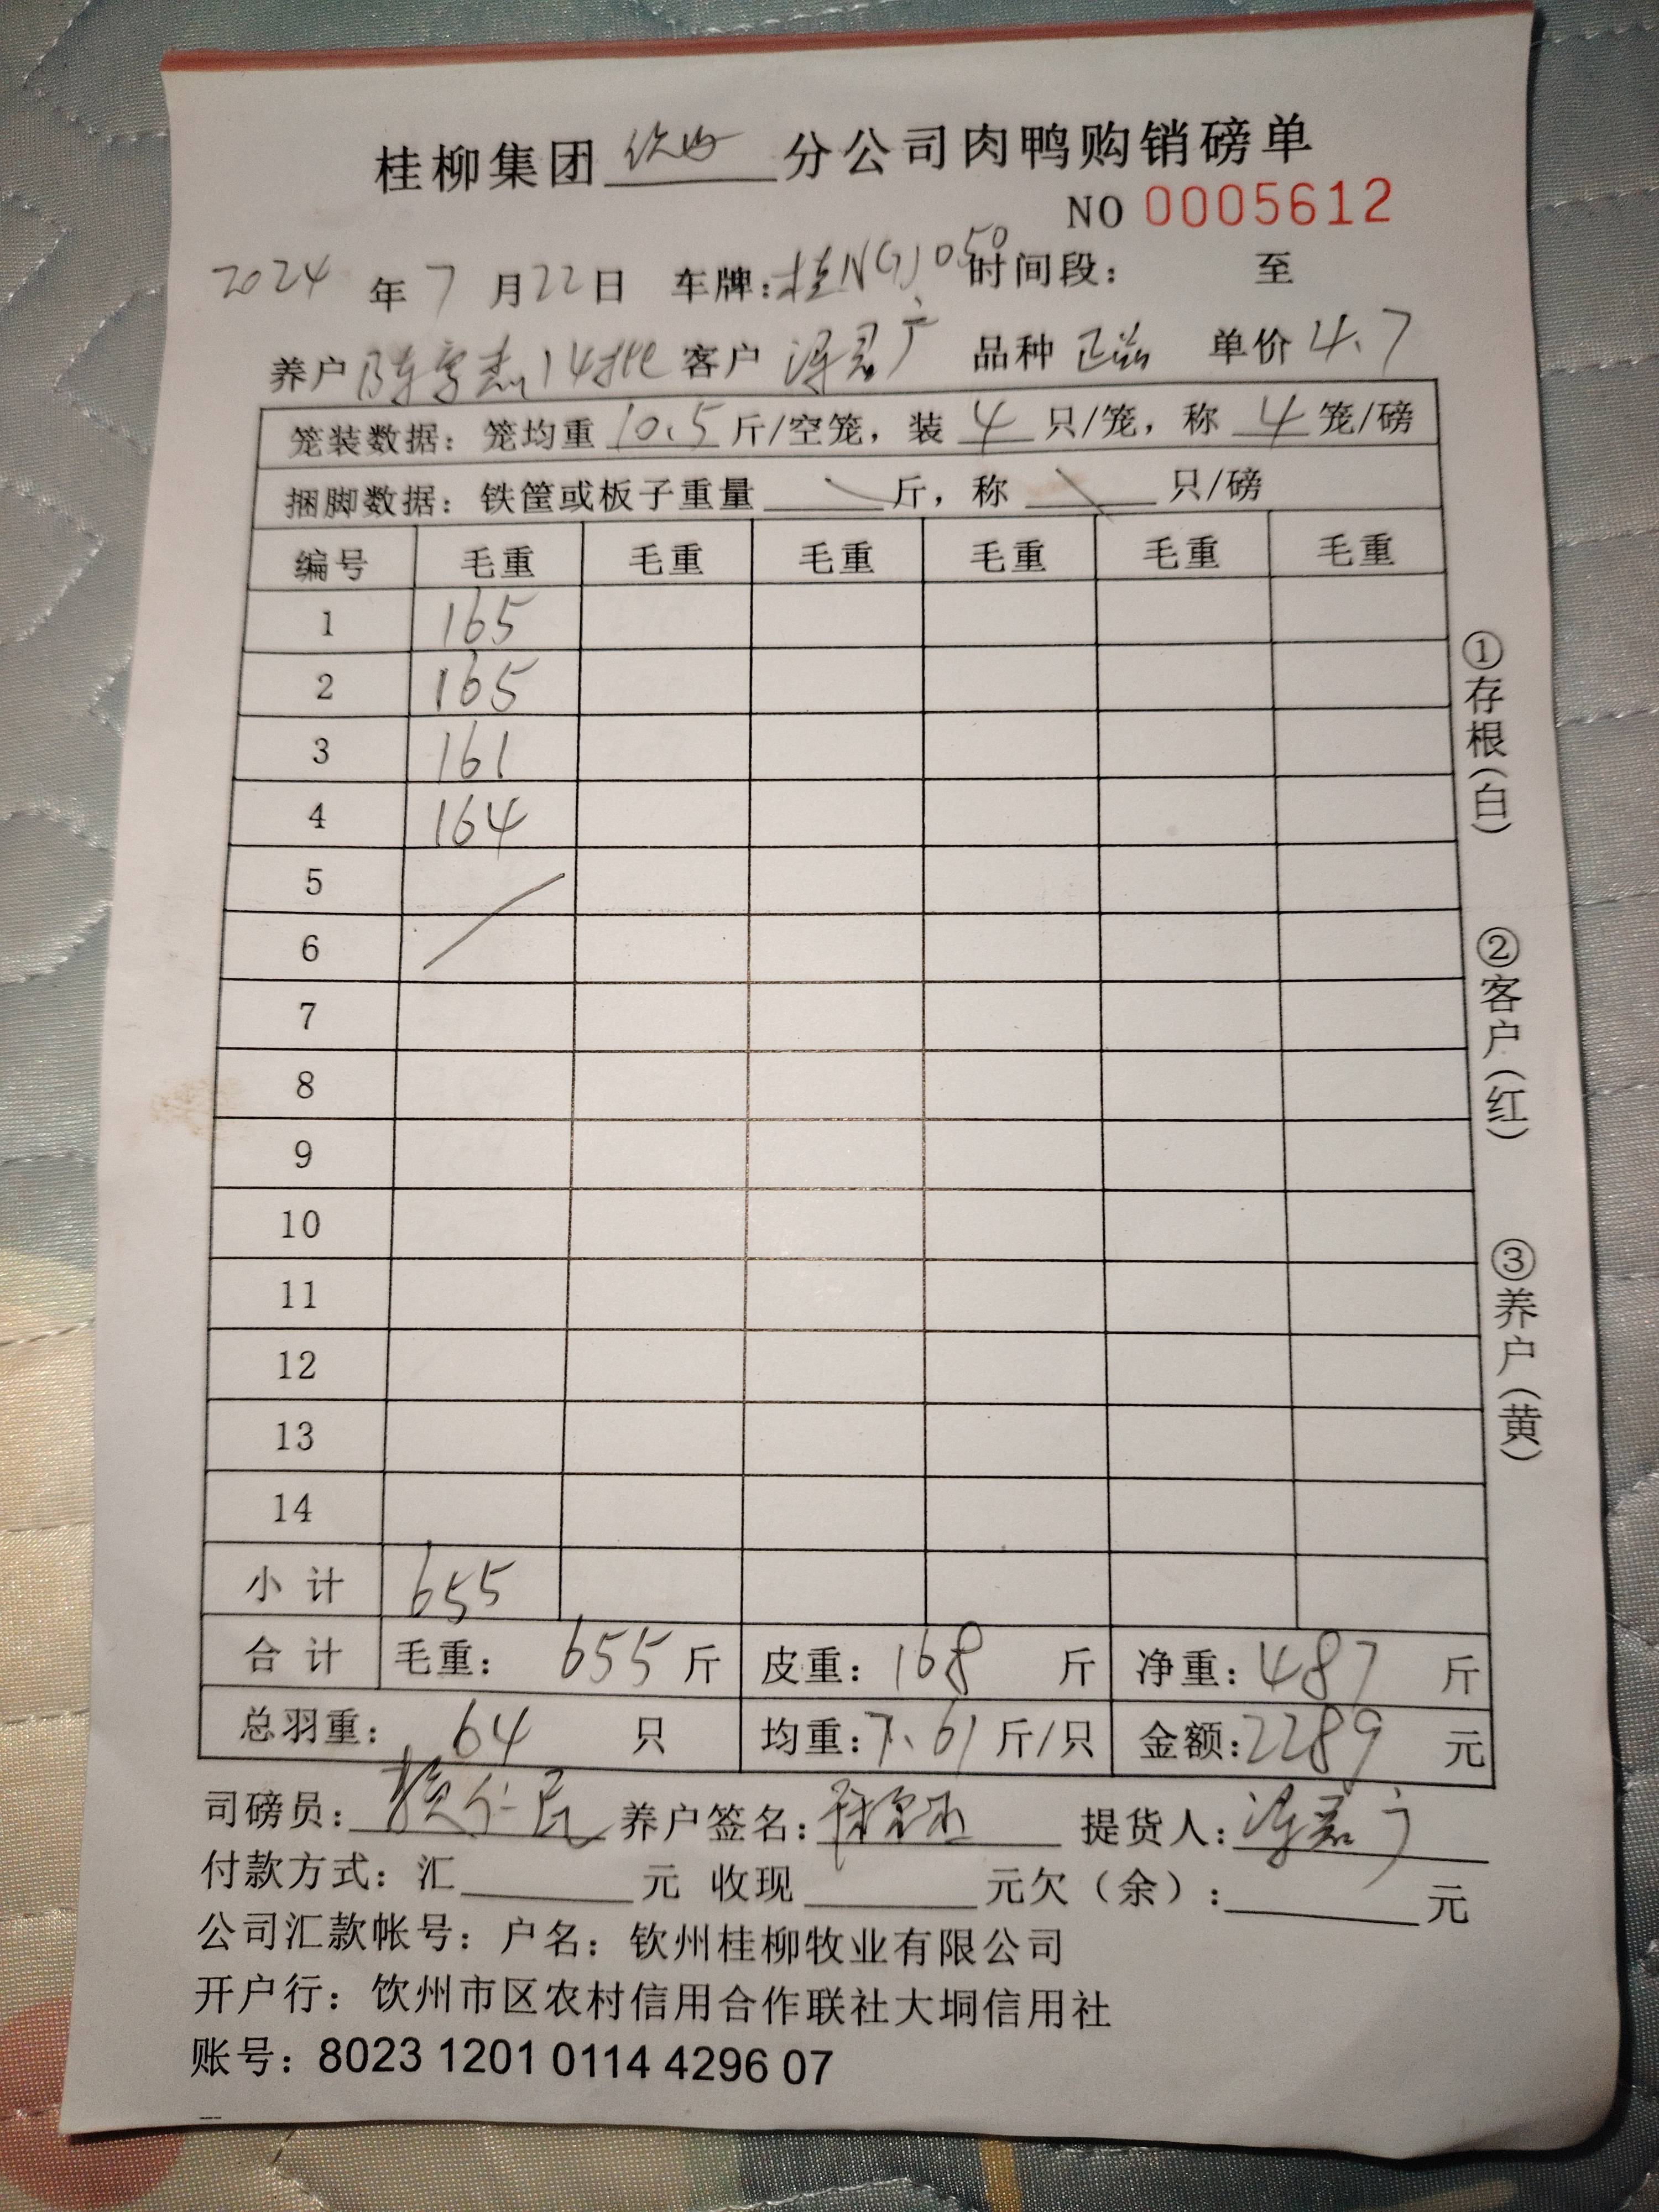 桂柳集团 钦州 分公司肉鸭购销磅单
NO 0005612
2024 年 7 月 22 日 车牌: 桂N 050 时间段: 至
养户 陈 杰 14批 客户 广 品种 正 单价 4.7
笼装数据: 笼均重 10.5 斤/空笼, 装 4 只/笼, 称 4 笼/磅
捆脚数据: 铁筐或板子重量 斤, 称 只/磅
编号 毛重 毛重 毛重 毛重 毛重 毛重
1 165
2 165
3 161
4 164
5
6
7
8
9
10
11
12
13
14
小计 655
合计 毛重: 655 斤 皮重: 168 斤 净重: 487 斤
总羽重: 64 只 均重: 7.61 斤/只 金额: 2289 元
司磅员: 养户签名: 提货人: 广
付款方式: 汇 元 收现 元欠(余): 元
公司汇款帐号: 户名: 钦州桂柳牧业有限公司
开户行: 饮州市区农村信用合作联社大垌信用社
账号: 8023 1201 0114 4296 07
①存根(白)
②客户(红)
③养户(黄)